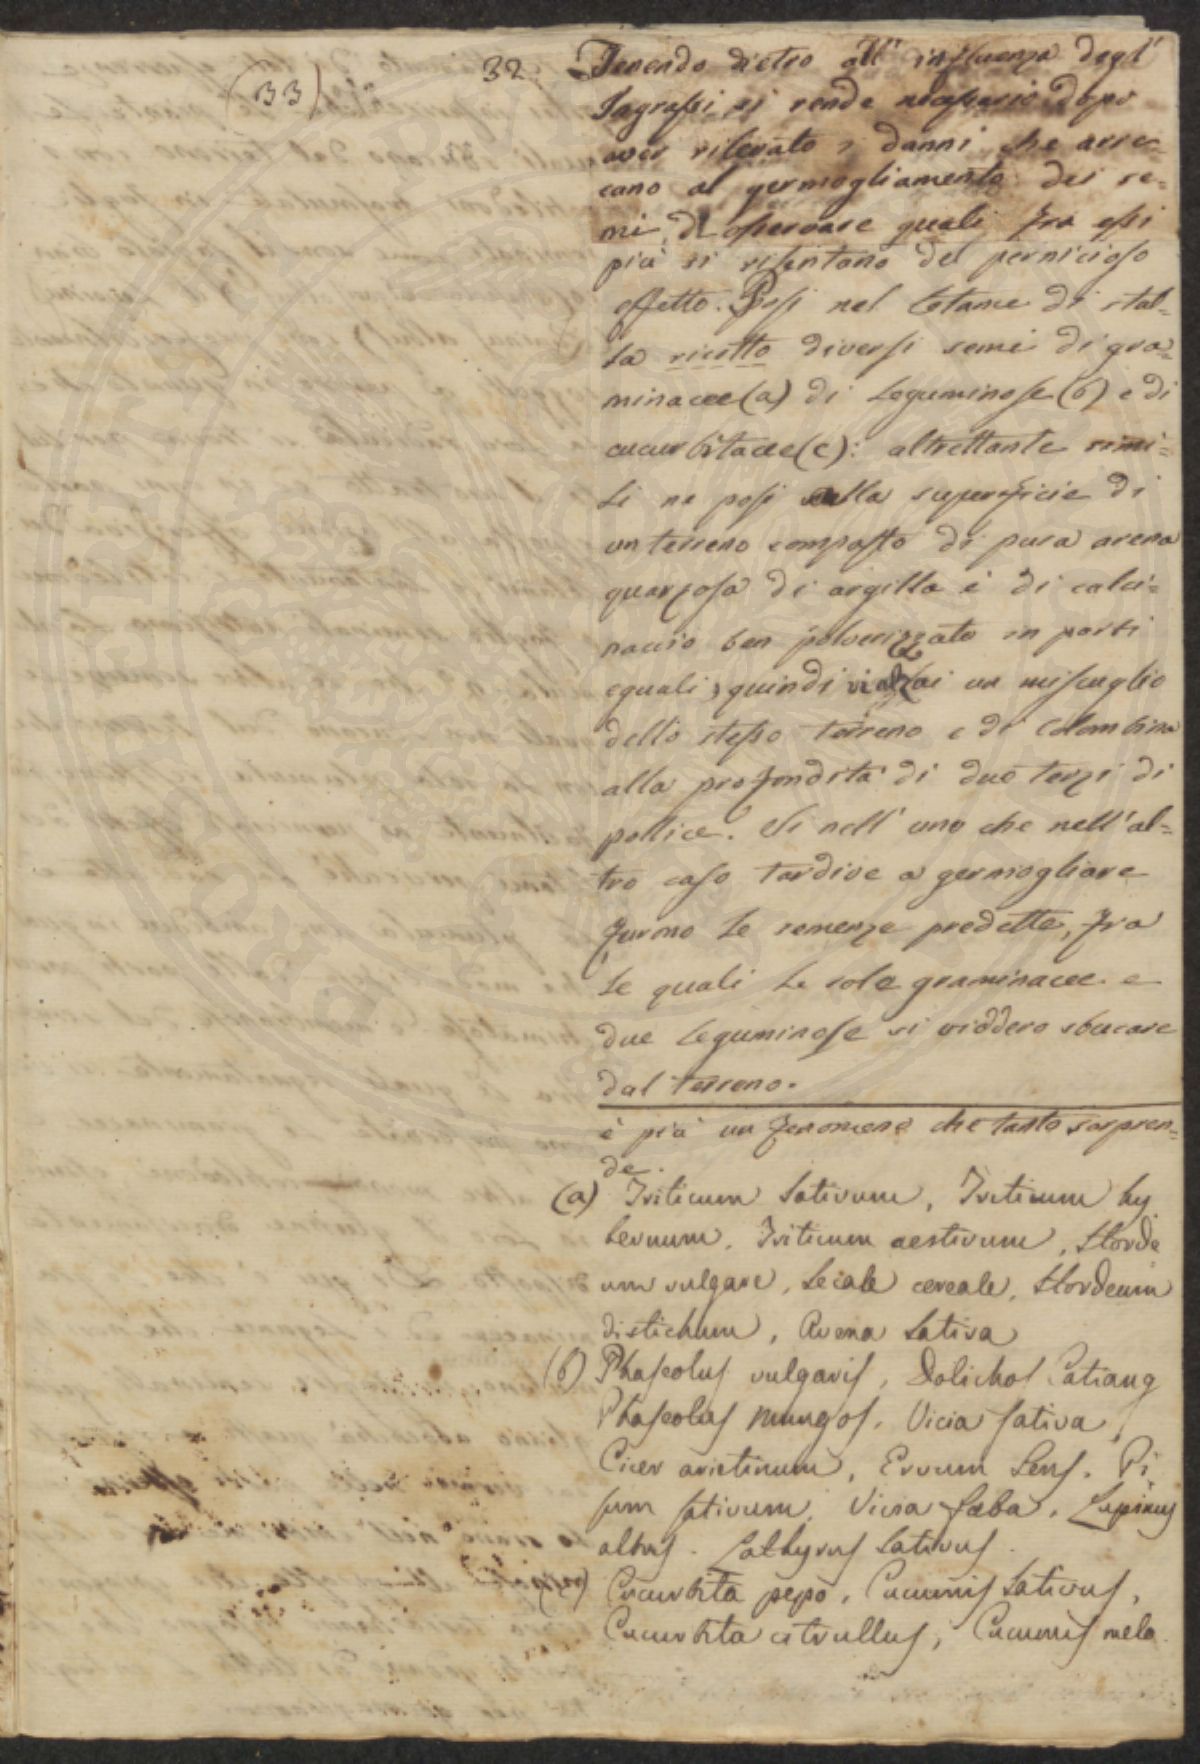 (33)
32. Tenendo dietro all' influenza degl'
Ingrassi, si rende necessario dopo
aver rilevato i danni che arre-
cano al germogliamento dei se-
mi, di osservare quali fra essi
più si risentano del pernicioso
effetto. Posi nel letame di stal-
la ricotto diversi semi di gra-
minacee (a) di Leguminose (b) e di
cucurbitacee (c): altrettante simi-
li ne posi sulla superficie di
un terreno composto di pura arena
quarzosa di argilla e di calci-
naccio ben polverizzato in parti
eguali, quindi vi alzai un miscuglio
dello stesso terreno e di Colombina
alla profondità di due terzi di
pollice. Sì nell' uno che nell' al-
tro caso tardive a germogliare
furono le semenze predette, fra
le quali le sole graminacee e
due leguminose si viddero sbucare
dal terreno.
è più un fenomeno che tanto sorpren-
de.
(a) Triticum sativum, Triticum hy
bernum, Triticum aestivum, Horde
um vulgare, Secale cereale, Hordeum
distichum, Avena sativa
(b) Phaseolus vulgaris, Dolichos Catiang
Phaseolus mungos, Vicia sativa,
Cicer arietinum, Ervum Lens, Pi-
sum sativum, Vicia faba, Lupinus
albus. Lathyrus sativus.
(c) Cucurbita pepo, Cucumis sativus,
Cucurbita citrullus, Cucumis melo.